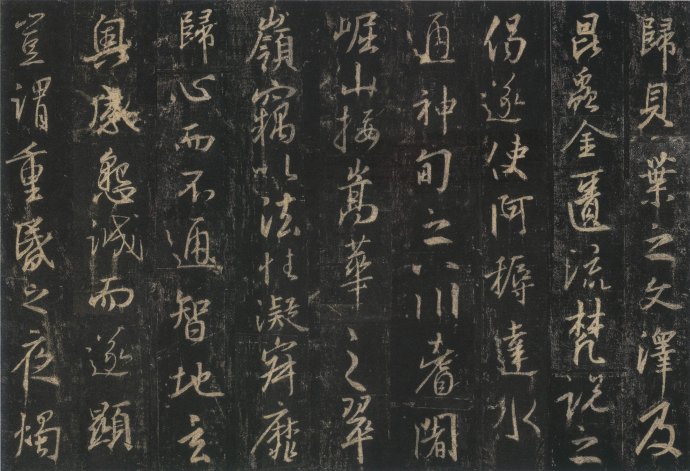 歸貝葉之文澤及
昆蟲金匱流梵說之
偈遂使阿耨達水
通神甸之八川耆闍
崛山接嵩華之翠
嶺竊以法性凝寂靡
歸心而不通智地玄
奧感懇誠而遂顯
豈謂重昏之夜燭